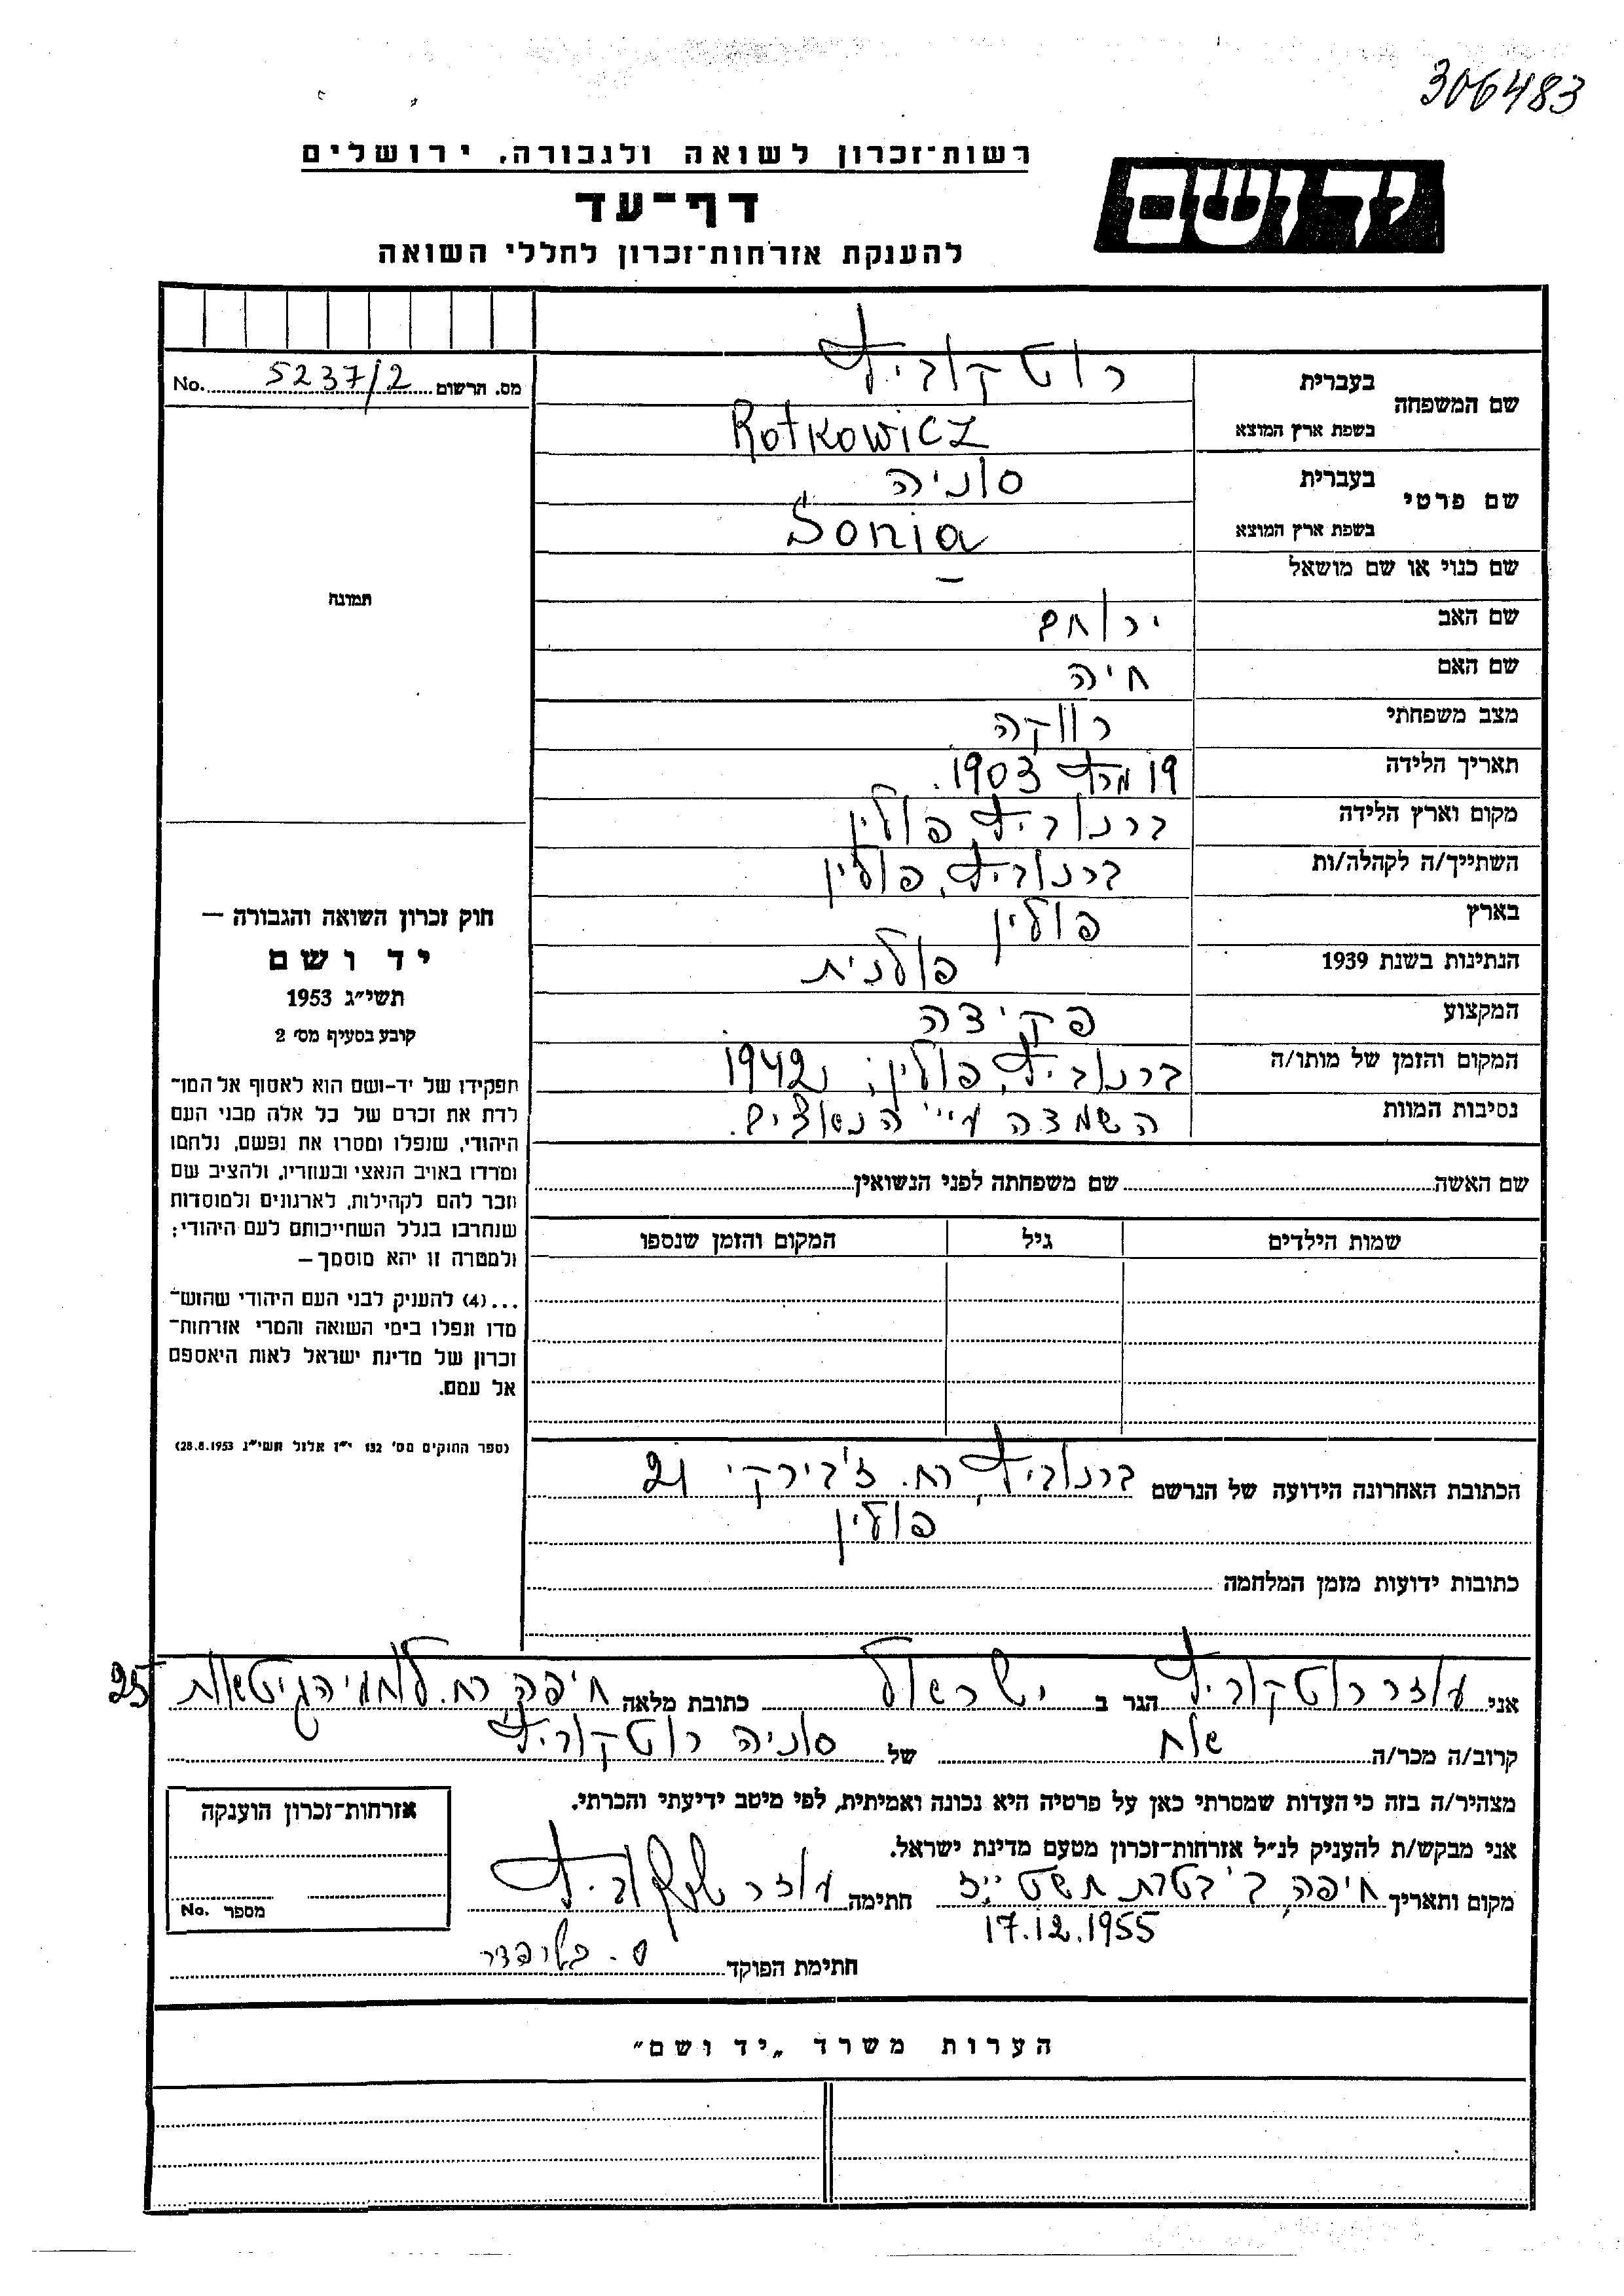 306483
יד ושם
רשות־זכרון לשואה ולגבורה, ירושלים
דף־עד
להענקת אזרחות־זכרון לחללי השואה
מס. הרשום 5237/2 No.
שם המשפחה בעברית רוטקוביץ
בשפת ארץ המוצא Rotkowicz
שם פרטי בעברית סוניה
בשפת ארץ המוצא Sonia
שם כנוי או שם מושאל –
שם האב ירוחם
שם האם חיה
מצב משפחתי רווקה
תאריך הלידה 19 מרץ 1903.
מקום וארץ הלידה ברנוביץ, פולין
השתייך/ה לקהלה/ות ברנוביץ, פולין
בארץ פולין
הנתינות בשנת 1939 פולנית
המקצוע פקידה
המקום והזמן של מותו/ה ברנוביץ, פולין; 1942
נסיבות המוות השמדה ע"י הנאצים.
תמונה
חוק זכרון השואה והגבורה —
יד ושם
תשי״ג 1953
קובע בסעיף מס׳ 2
תפקידו של יד-ושם הוא לאסוף אל המו־
לדת את זכרם של כל אלה מבני העם
היהודי, שנפלו ומסרו את נפשם, נלחמו
ומרדו באויב הנאצי ובעוזריו, ולהציב שם
וזכר להם לקהילות, לארגונים ולמוסדות
שנחרבו בגלל השתייכותם לעם היהודי;
ולמטרה זו יהא מוסמך—
...(4) להעניק לבני העם היהודי שהוש־
מדו ונפלו בימי השואה והמרי אזרחות־
זכרון של מדינת ישראל לאות היאספם
אל עמם.
(ספר החוקים מס׳ 132 י״ז אלול תשי״ג 28.8.1953)
שם האשה שם משפחתה לפני הנשואין
שמות הילדים גיל המקום והזמן שנספו
הכתובת האחרונה הידועה של הנרשם ברנוביץ, רח. ז'בירקי 21
פולין
כתובות ידועות מזמן המלחמה
אני עוזר רוטקוביץ הגר ב ישראל כתובת מלאה חיפה, רח. לוחמי הגיטאות 25
קרוב/ה מכר/ה אח של סוניה רוטקוביץ
מצהיר/ה בזה כי העדות שמסרתי כאן על פרטיה היא נכונה ואמיתית, לפי מיטב ידיעתי והכרתי.
אני מבקש/ת להעניק לנ״ל אזרחות־זכרון מטעם מדינת ישראל.
מקום ותאריך חיפה, ב' בטבת תשט"ז חתימה עוזר רוטקוביץ
17.12.1955
חתימת הפוקד
אזרחות־זכרון הוענקה
מספר No.
הערות משרד „יד ושם״